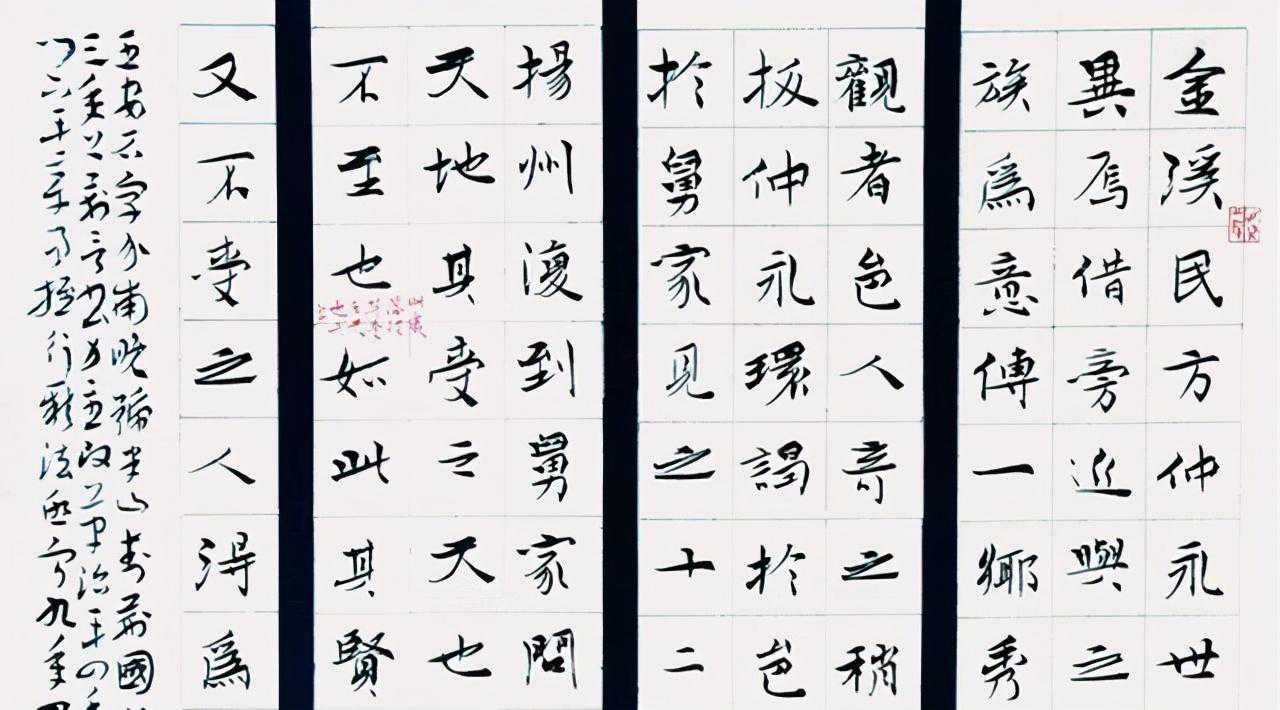 金溪民方仲永世
異焉借旁近與之
族爲意傳一鄉秀
觀者邑人奇之稍
扳仲永環謁於邑
於舅家見之十二
揚州復到舅家問
天地其受之天也
不至也如此其賢
又不受之人得爲
王安石字介甫晚號半山封荊國